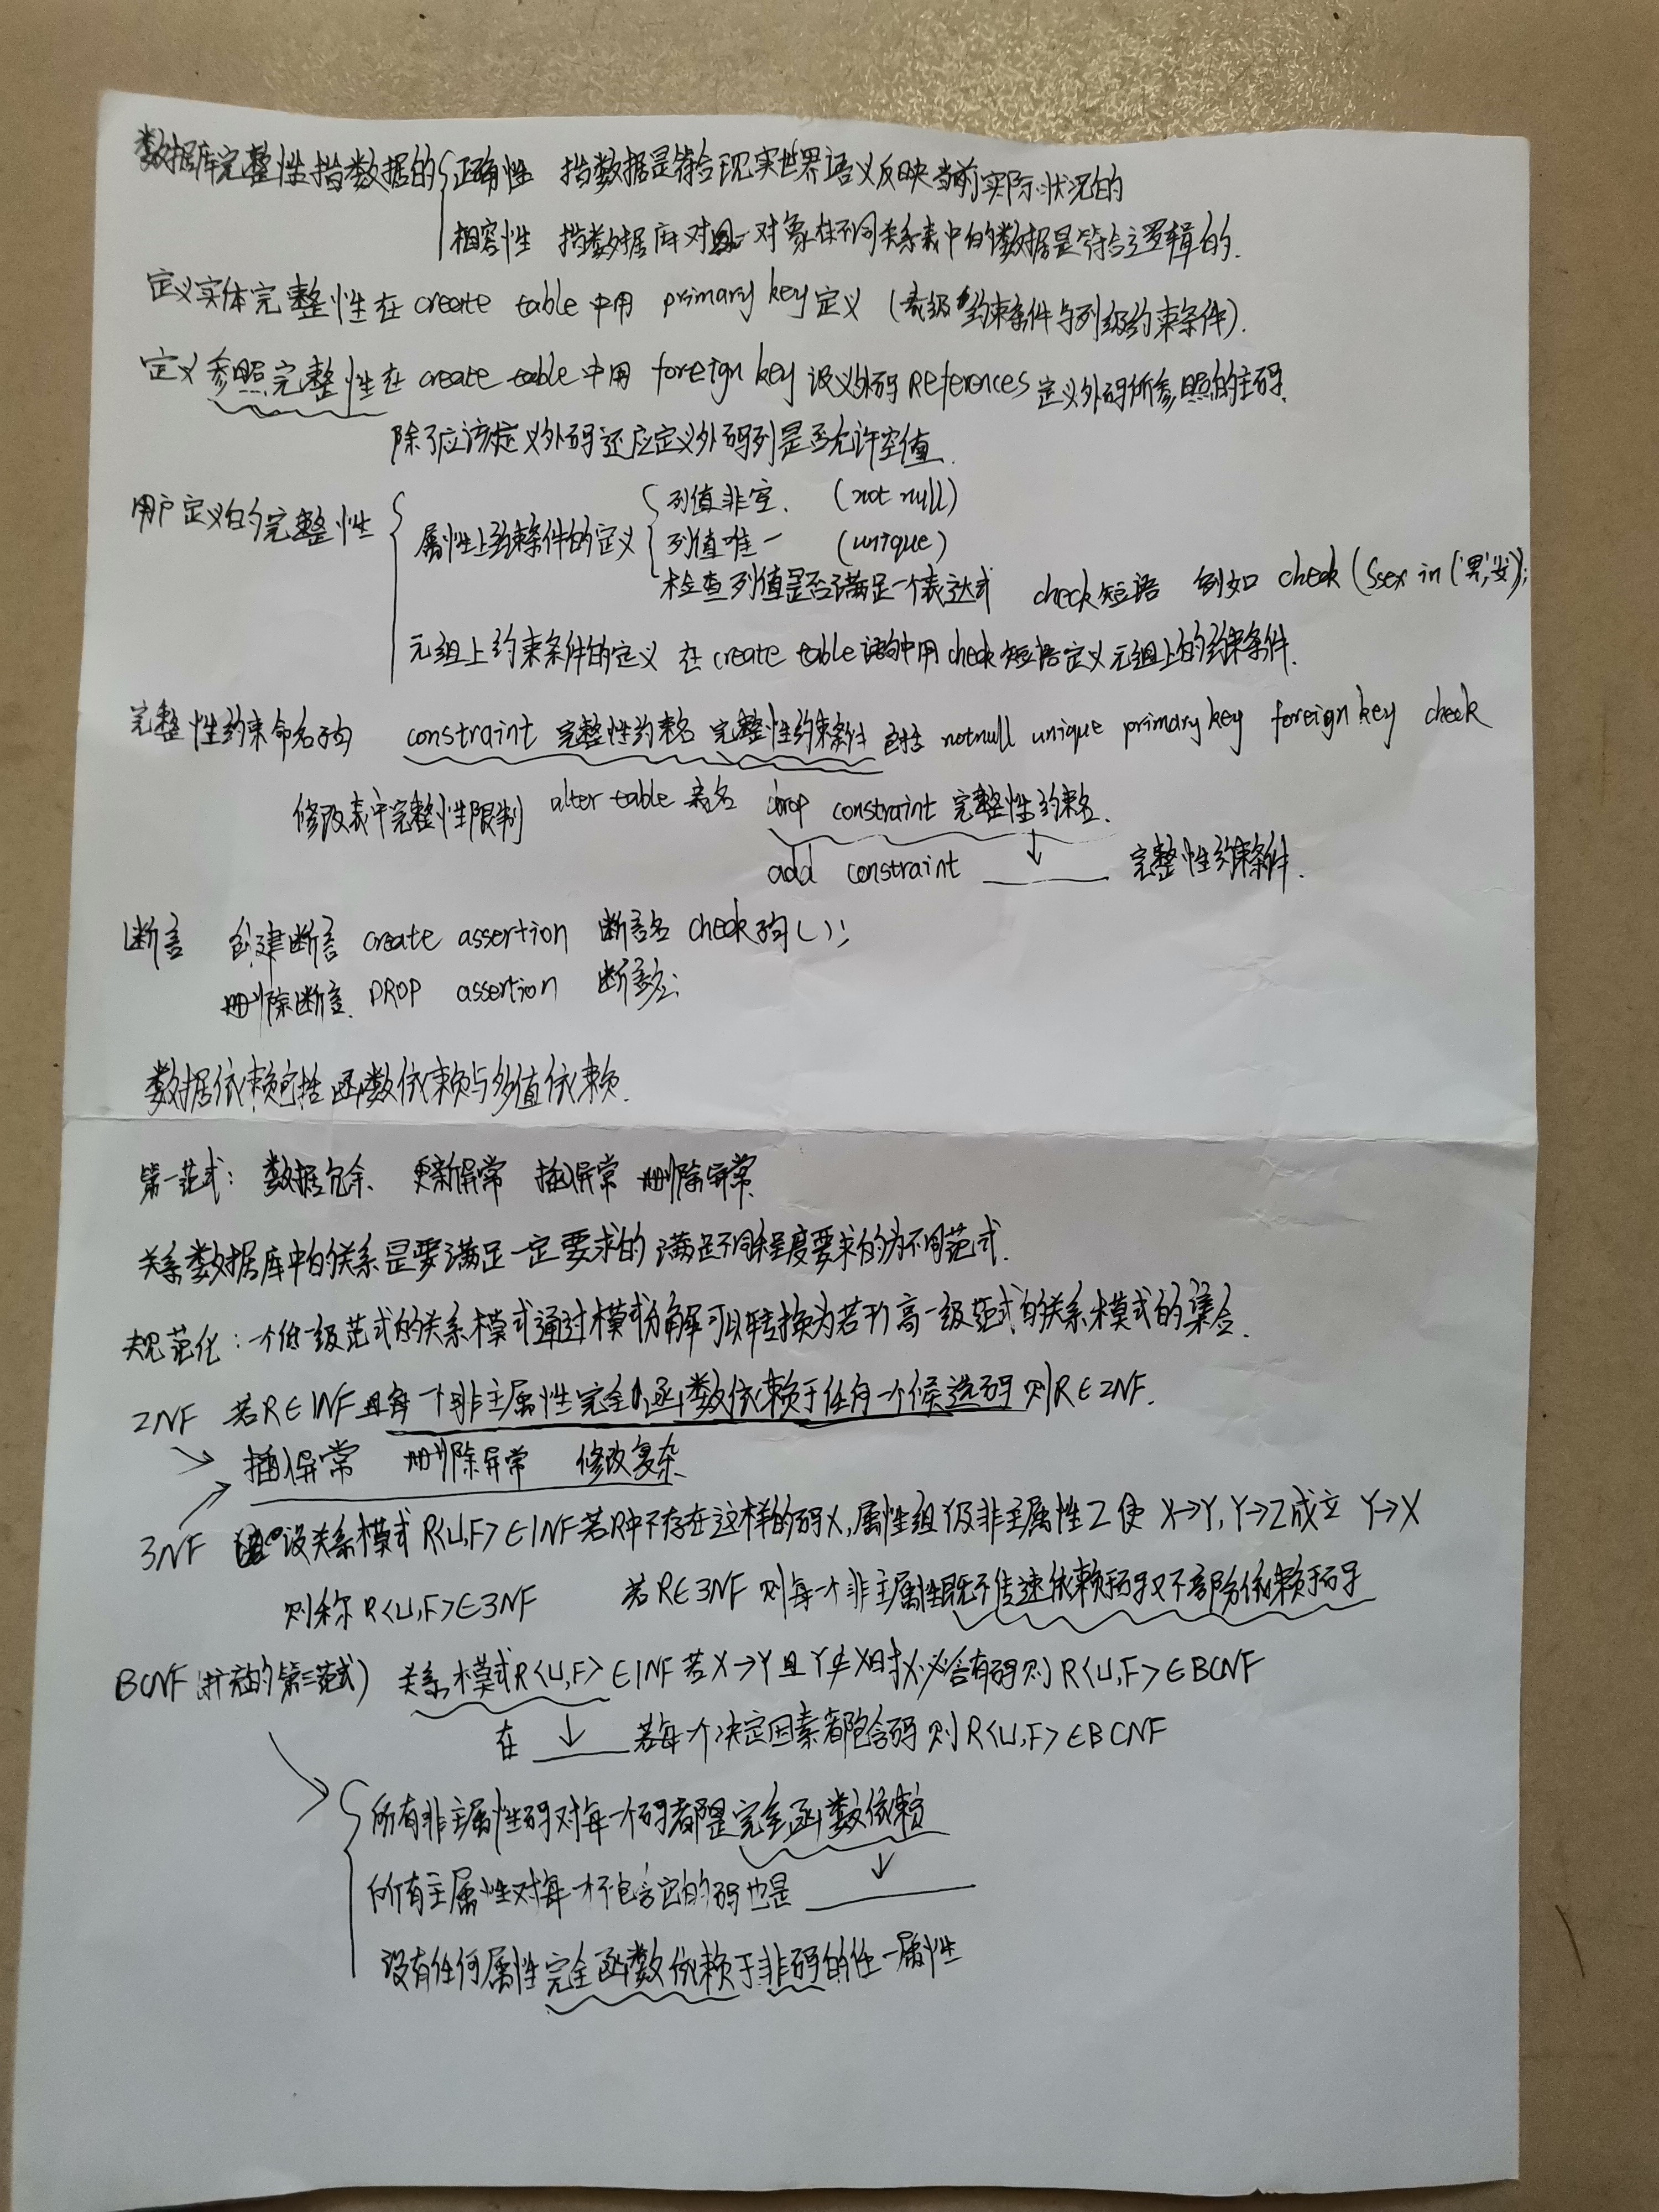 数据库完整性指数据的{正确性 指数据是符合现实世界语义反映当前实际状况的
相容性 指数据库对同一对象在不同关系表中的数据是符合逻辑的.
定义实体完整性在 create table 中用 primary key 定义 (表级约束条件与列级约束条件).
定义参照完整性在 create table 中用 foreign key 定义外码 References 定义外码所参照的主码.
除了应该定义外码还应定义外码列是否允许空值.
用户定义的完整性
属性上约束条件的定义
列值非空. (not null)
列值唯一 (unique)
检查列值是否满足一个表达式 check短语 例如 check (Ssex in ('男','女');
元组上约束条件的定义 在 create table 语句中用 check 短语定义元组上的约束条件.
完整性约束命名子句 constraint 完整性约束名 完整性约束条件 包括 notnull unique primary key foreign key check
修改表中完整性限制 alter table 表名 drop constraint 完整性约束名.
add constraint ↓ 完整性约束条件.
断言 创建断言 create assertion 断言名 check子句( );
删除断言. DROP assertion 断言名;
数据依赖包括函数依赖与多值依赖.
第一范式: 数据冗余、 更新异常 插入异常 删除异常.
关系数据库中的关系是要满足一定要求的 满足不同程度要求的为不同范式.
规范化: 一个低一级范式的关系模式通过模式分解可以转换为若干高一级范式的关系模式的集合.
2NF 若R∈1NF且每一个非主属性完全函数依赖于任何一个候选码则R∈2NF.
插入异常 删除异常 修改复杂
3NF 设关系模式R<U,F>∈1NF若R中不存在这样的码X,属性组Y及非主属性Z使 X→Y, Y→Z成立 Y→X
则称 R<U,F>∈3NF 若R∈3NF 则每一个非主属性既不传递依赖于码又不部分依赖于码
BCNF (扩充的第三范式) 关系模式R<U,F>∈1NF若X→Y且Y⊄X时X必含有码则R<U,F>∈BCNF
在 ↓ 若每个决定因素都包含码则R<U,F>∈BCNF
所有非主属性码对每一个码都是完全函数依赖
所有主属性对每一个不包含它的码也是 ↓
没有任何属性完全函数依赖于非码的任一属性